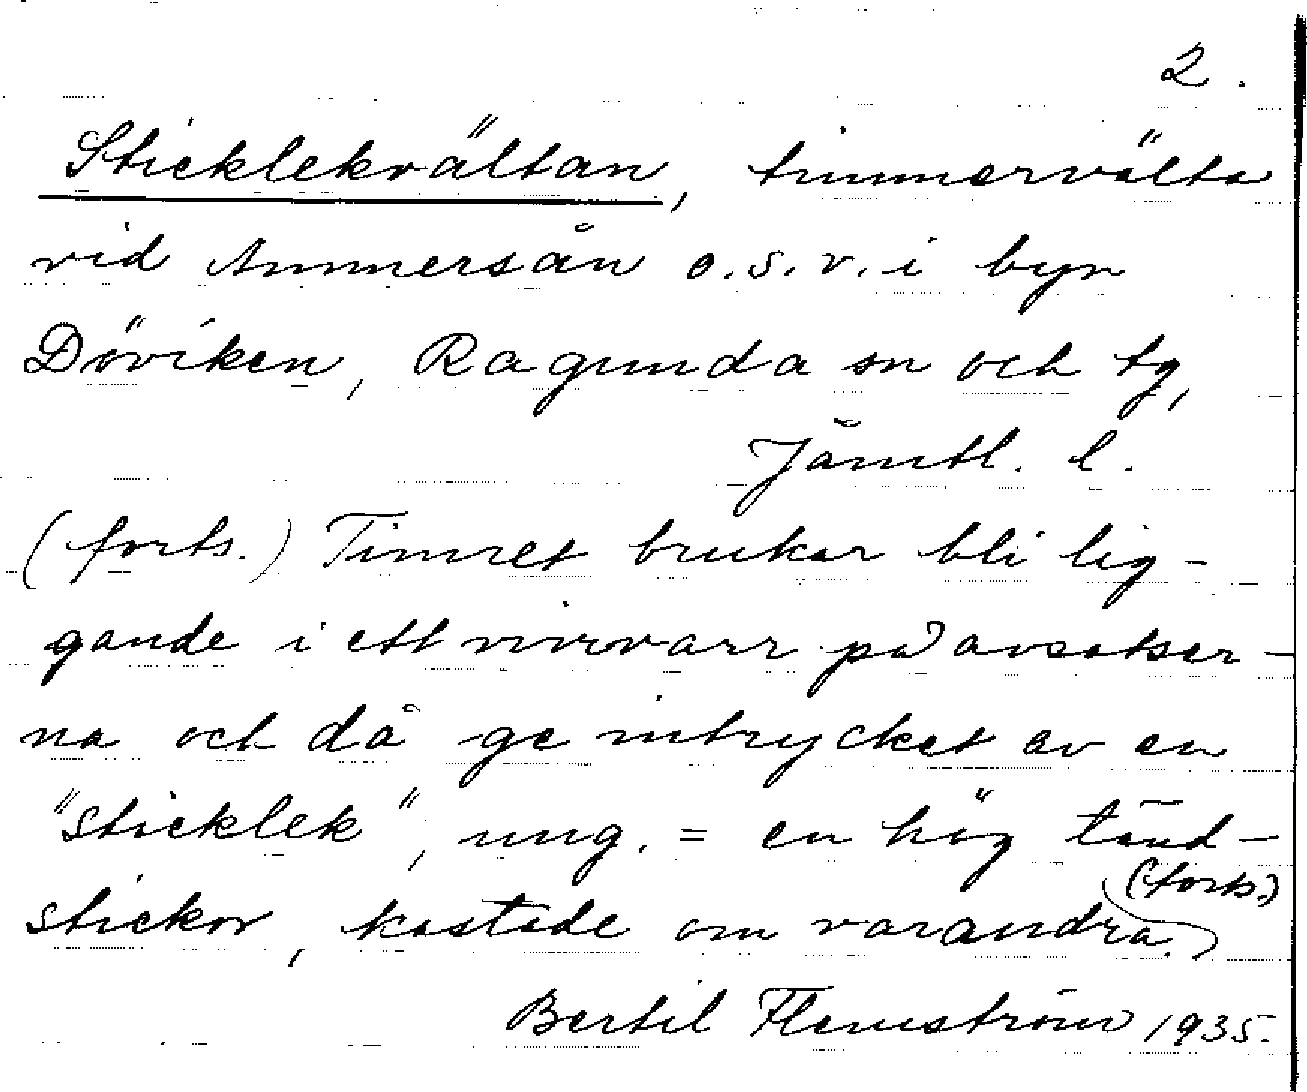 2.
Sticklekvältan, timmervälta
vid Ammersån o.s.v. i byn
Döviken, Ragunda sn och tg,
Jämtl. l.
(forts.) Timret brukar bli lig-
gande i ett virrvarr på avsatser-
na och då ge intrycket av en
"sticklek", ung. = en hög tänd-
(forts.)
stickor, kastade om varandra.
Bertil Flemström 1935.